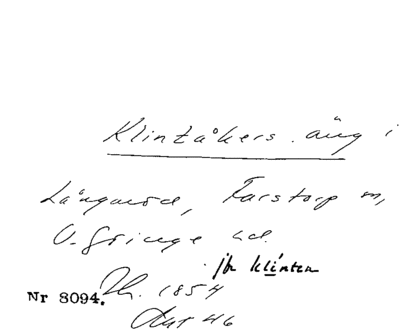 Klintåkers äng i
Långaröd, Farstorp m,
V. Göinge hd.
jfr klinten
Nr 8094. Th. 1854
Akt 46